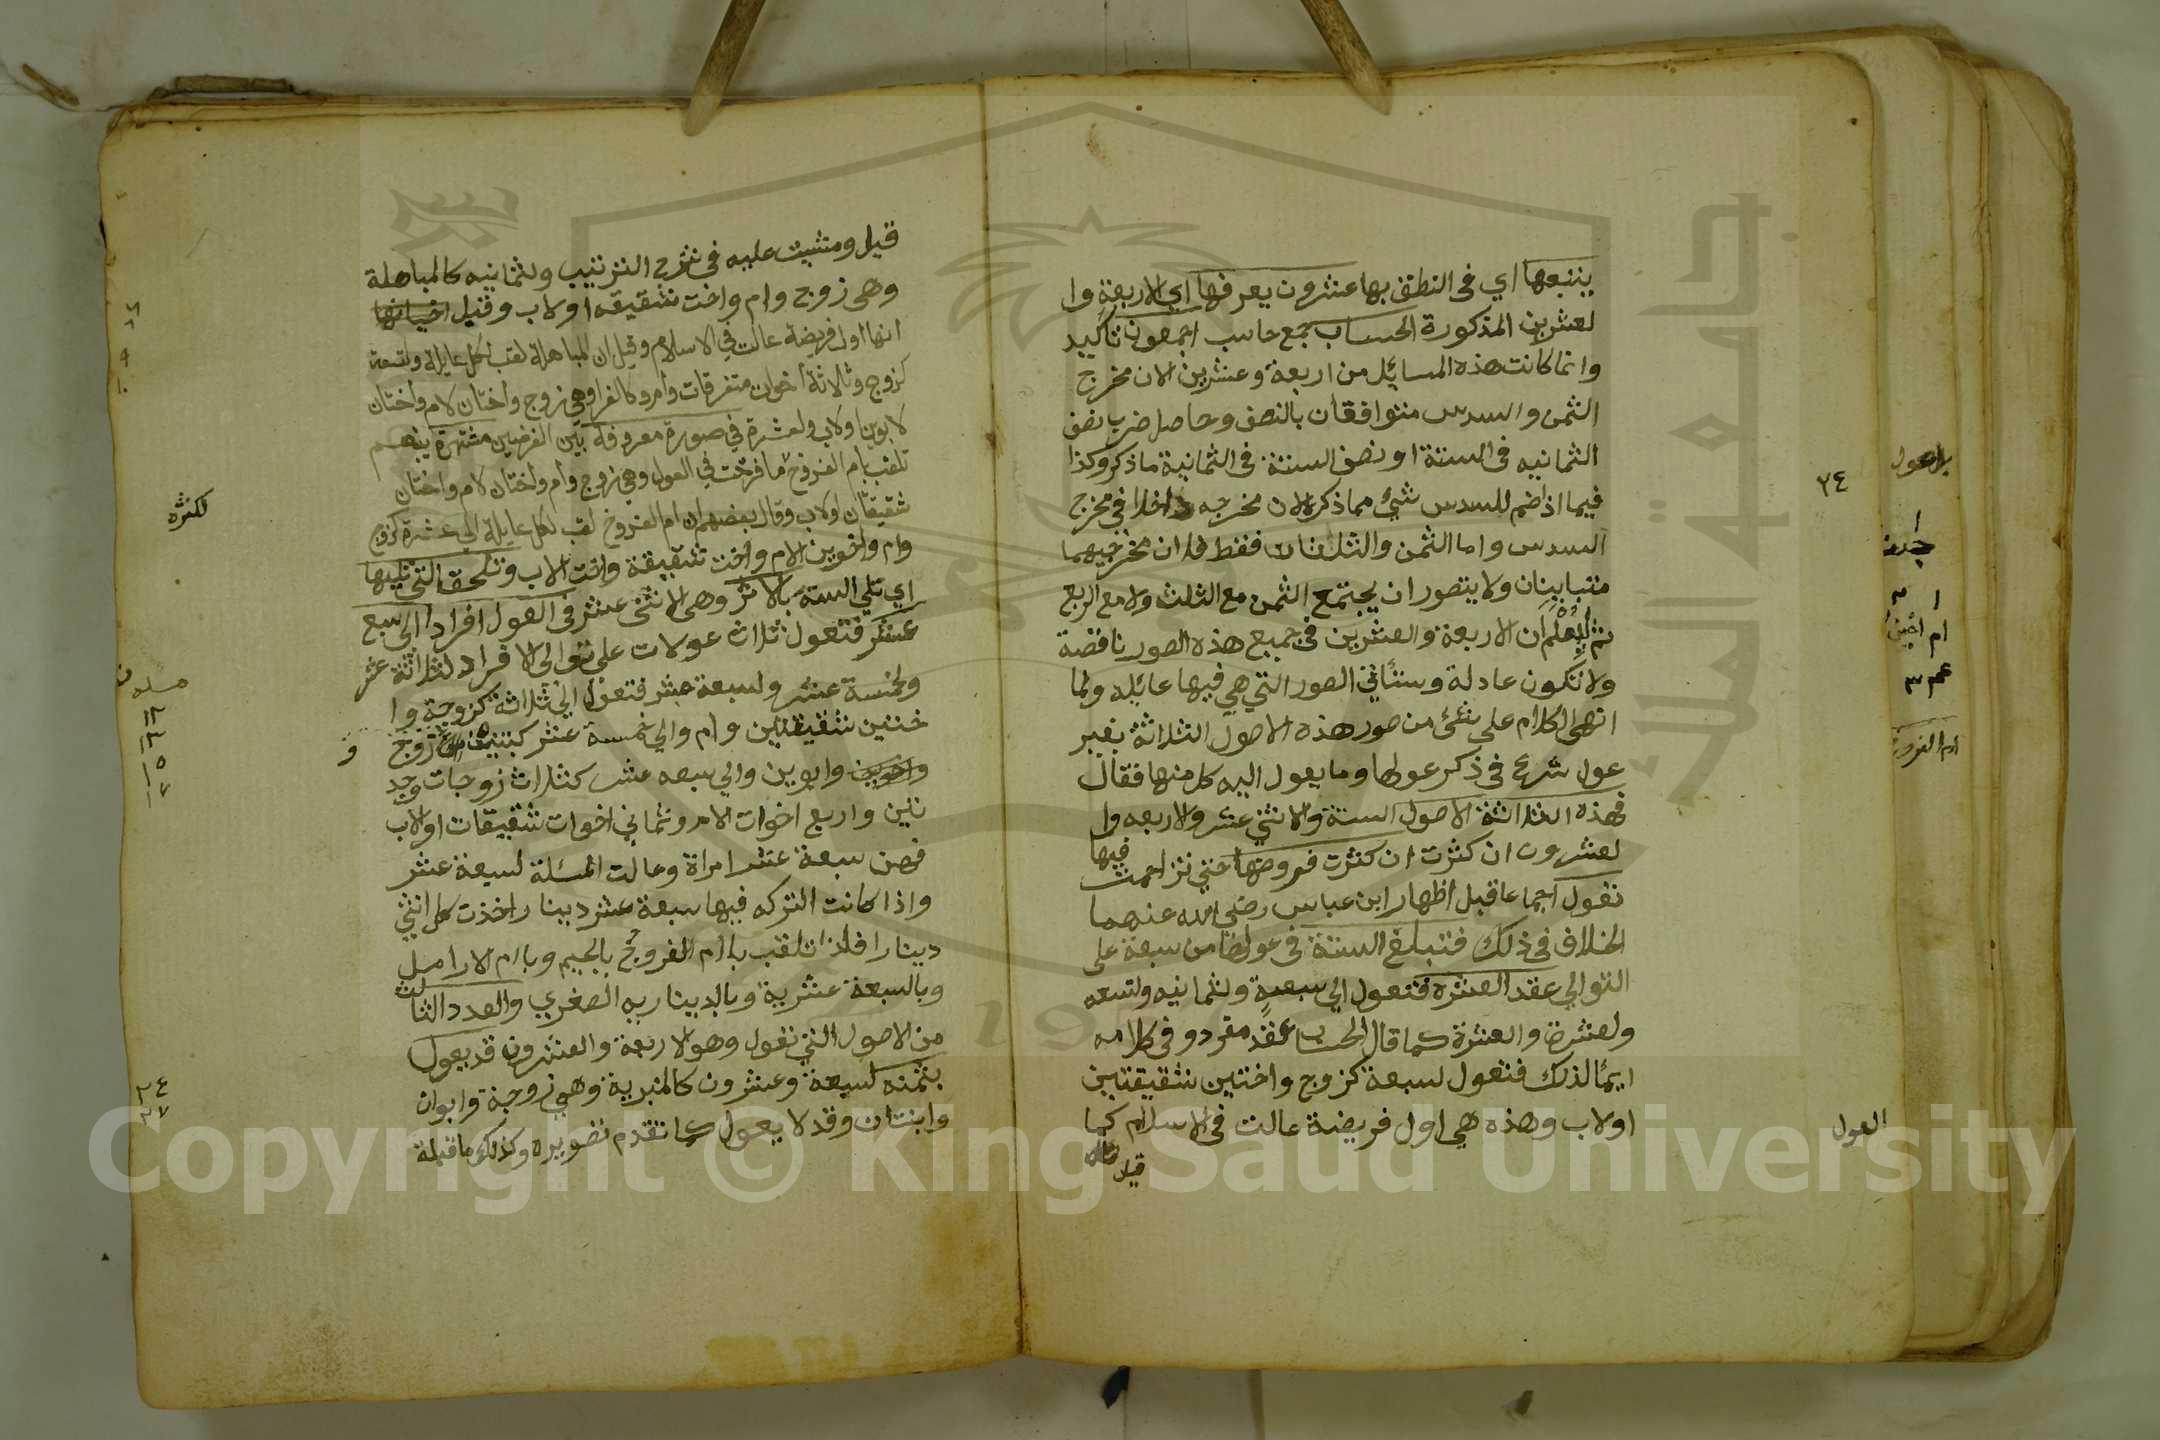 يتبعها اي في النطق بها عشرون يعرفها اي الاربعة وا
لعشرين المذكورة الحساب جمع حاسب اجمعون تاكيد
وانما كانت هذه المسايل من اربعة وعشرين لان مخرج
الثمن والسدس متوافقان بالنصف وحاصل ضرب نصف
الثمانيه في الستة او نصف الستة في الثمانية ما ذكر وكذا
فيما اذا ضم للسدس شيئ مما ذكر لان مخرجه داخل في مخرج
السدس واما الثمن والثلثان فقط فلان مخرجيهما
متباينان ولا يتصور ان يجتمع الثمن مع الثلث ولا مع الربع
ثم ليعلم ان الاربعة والعشرين في جميع هذه الصور ناقصة
ولا تكون عادلة وستأتي الصور التي هي فيها عايله ولما
انهى الكلام على شئ من صور هذه الاصول الثلاثة بغير
عول شرع في ذكر عولها وما يعول اليه كل منها فقال
فهذه الثلاثة الاصول الستة والاثني عشر والاربعه وا
لعشرون ان كثرت ان كثرت فروضها حتى تزاحمت فيها
تعول اجماعا قبل اظهار ابن عباس رضي الله عنهما
الخلاف في ذلك فتبلغ الستة في عولها من سبعة على
التوالي عقد العشرة فتعول الى سبعة ولثمانيه ولتسعه
ولعشرة والعشرة كما قال الحساب عقد مفرد وفي كلامه
ايمأ لذلك فتعول لسبعة كزوج واختين شقيقتين
اولاب وهذه هي اول فريضة عالت في الاسلام كما
قيل
٢٤
العول
ام
عم ٣
قيل ومشيت عليه في شرح الترتيب ولثمانيه كالمباهلة
وهي زوج وام واخت شقيقه اولاب وقيل
انها اول فريضة عالت في الاسلام وقيل ان المباهلة لقب لكل عايلة ولتسعة
كزوج وثلاثة اخوات متفرقات وام وكالغرا وهي زوج واختان لام واختان
لابوين اولاب ولعشرة في صورة معروفة بين الفرضيين مشتهرة بينهم
تلقب بام الفروخ ما فرخت في العول وهي زوج وام واختان لام واختان
شقيقتان اولاب وقال بعضهم ان ام الفروخ لقب لكل عايلة الى عشرة كزوج
وام واخوين لام واخت شقيقة واخت لاب وتلحق التي تليها
اي تلي الستة بالاثر وهي الاثنى عشر في العول افرادا الى سبع
عشر فتعول ثلاث عولات على توالى الافراد لثلاثة عشر
ولخمسة عشر ولسبعة عشر فتعول الى ثلاثة كزوجة وا
ختين شقيقتين وام والى خمسة عشر كبنتين زوج
وابوين والى سبعه عشر كثلاث زوجات وجد
تين واربع اخوات لام وثماني اخوات شقيقات اولاب
فهن سبعة عشر امراة وعالت المسئلة لسبعة عشر
واذا كانت التركه فيها سبعة عشر دينارا خذت كل انثى
دينارا فلذا تلقب بام الفروج بالجيم وبام الارامل
وبالسبعة عشرية وبالديناريه الصغري والعدد الثالث
من الاصول التي تعول وهو الاربعة والعشرون قد يعول
بثمنه لسبعة وعشرون كالمنبرية وهي زوجة وابوان
وابنتان وقد لا يعول كما تقدم تصويره وكذلك ما قبله
لكثره
١٢
١٣
١٥
١٧
٢٤
٢٧
Copyright © King Saud University